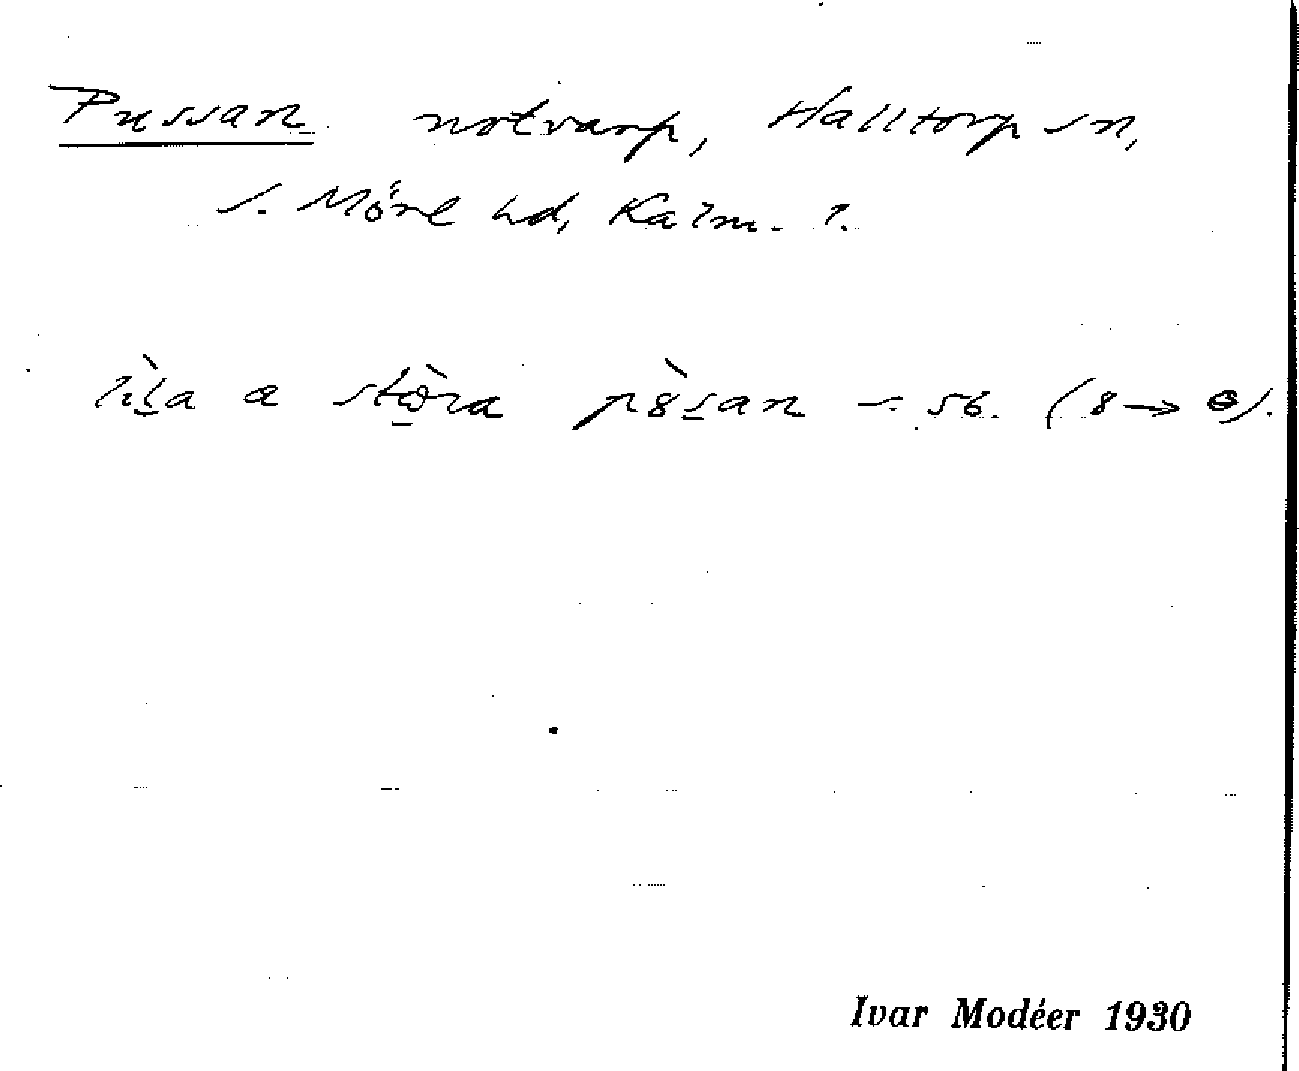 Pussan notvarp, Halltorp sn,
s. Möre hd, Kalm. l.
lìḻa a stò̱ra p8̀s̱an s. 56. (8 → ɵ).
Ivar Modéer 1930